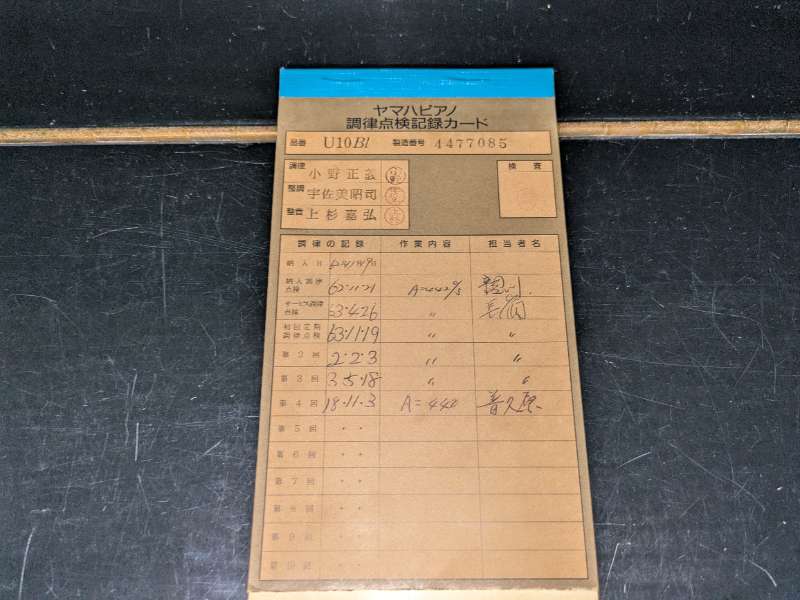 ヤマハピアノ
調律点検記録カード
品番 U10Bl 製造番号 4477085
調律 小野正 検査
整調 宇佐美昭司
整音 上杉嘉弘
調律の記録 作業内容 担当者名
納入日
納入調律点検 62・11・21
サービス調律点検 63・4・26 〃
初回定期調律点検 63・11・19 〃 〃
第2回 2・2・3 〃 〃
第3回 3・5・18 〃 〃
第4回 18・11・3 A=440 普久原
第5回 ・ ・
第6回 ・ ・
第7回 ・ ・
第8回 ・ ・
第9回 ・ ・
第10回 ・ ・